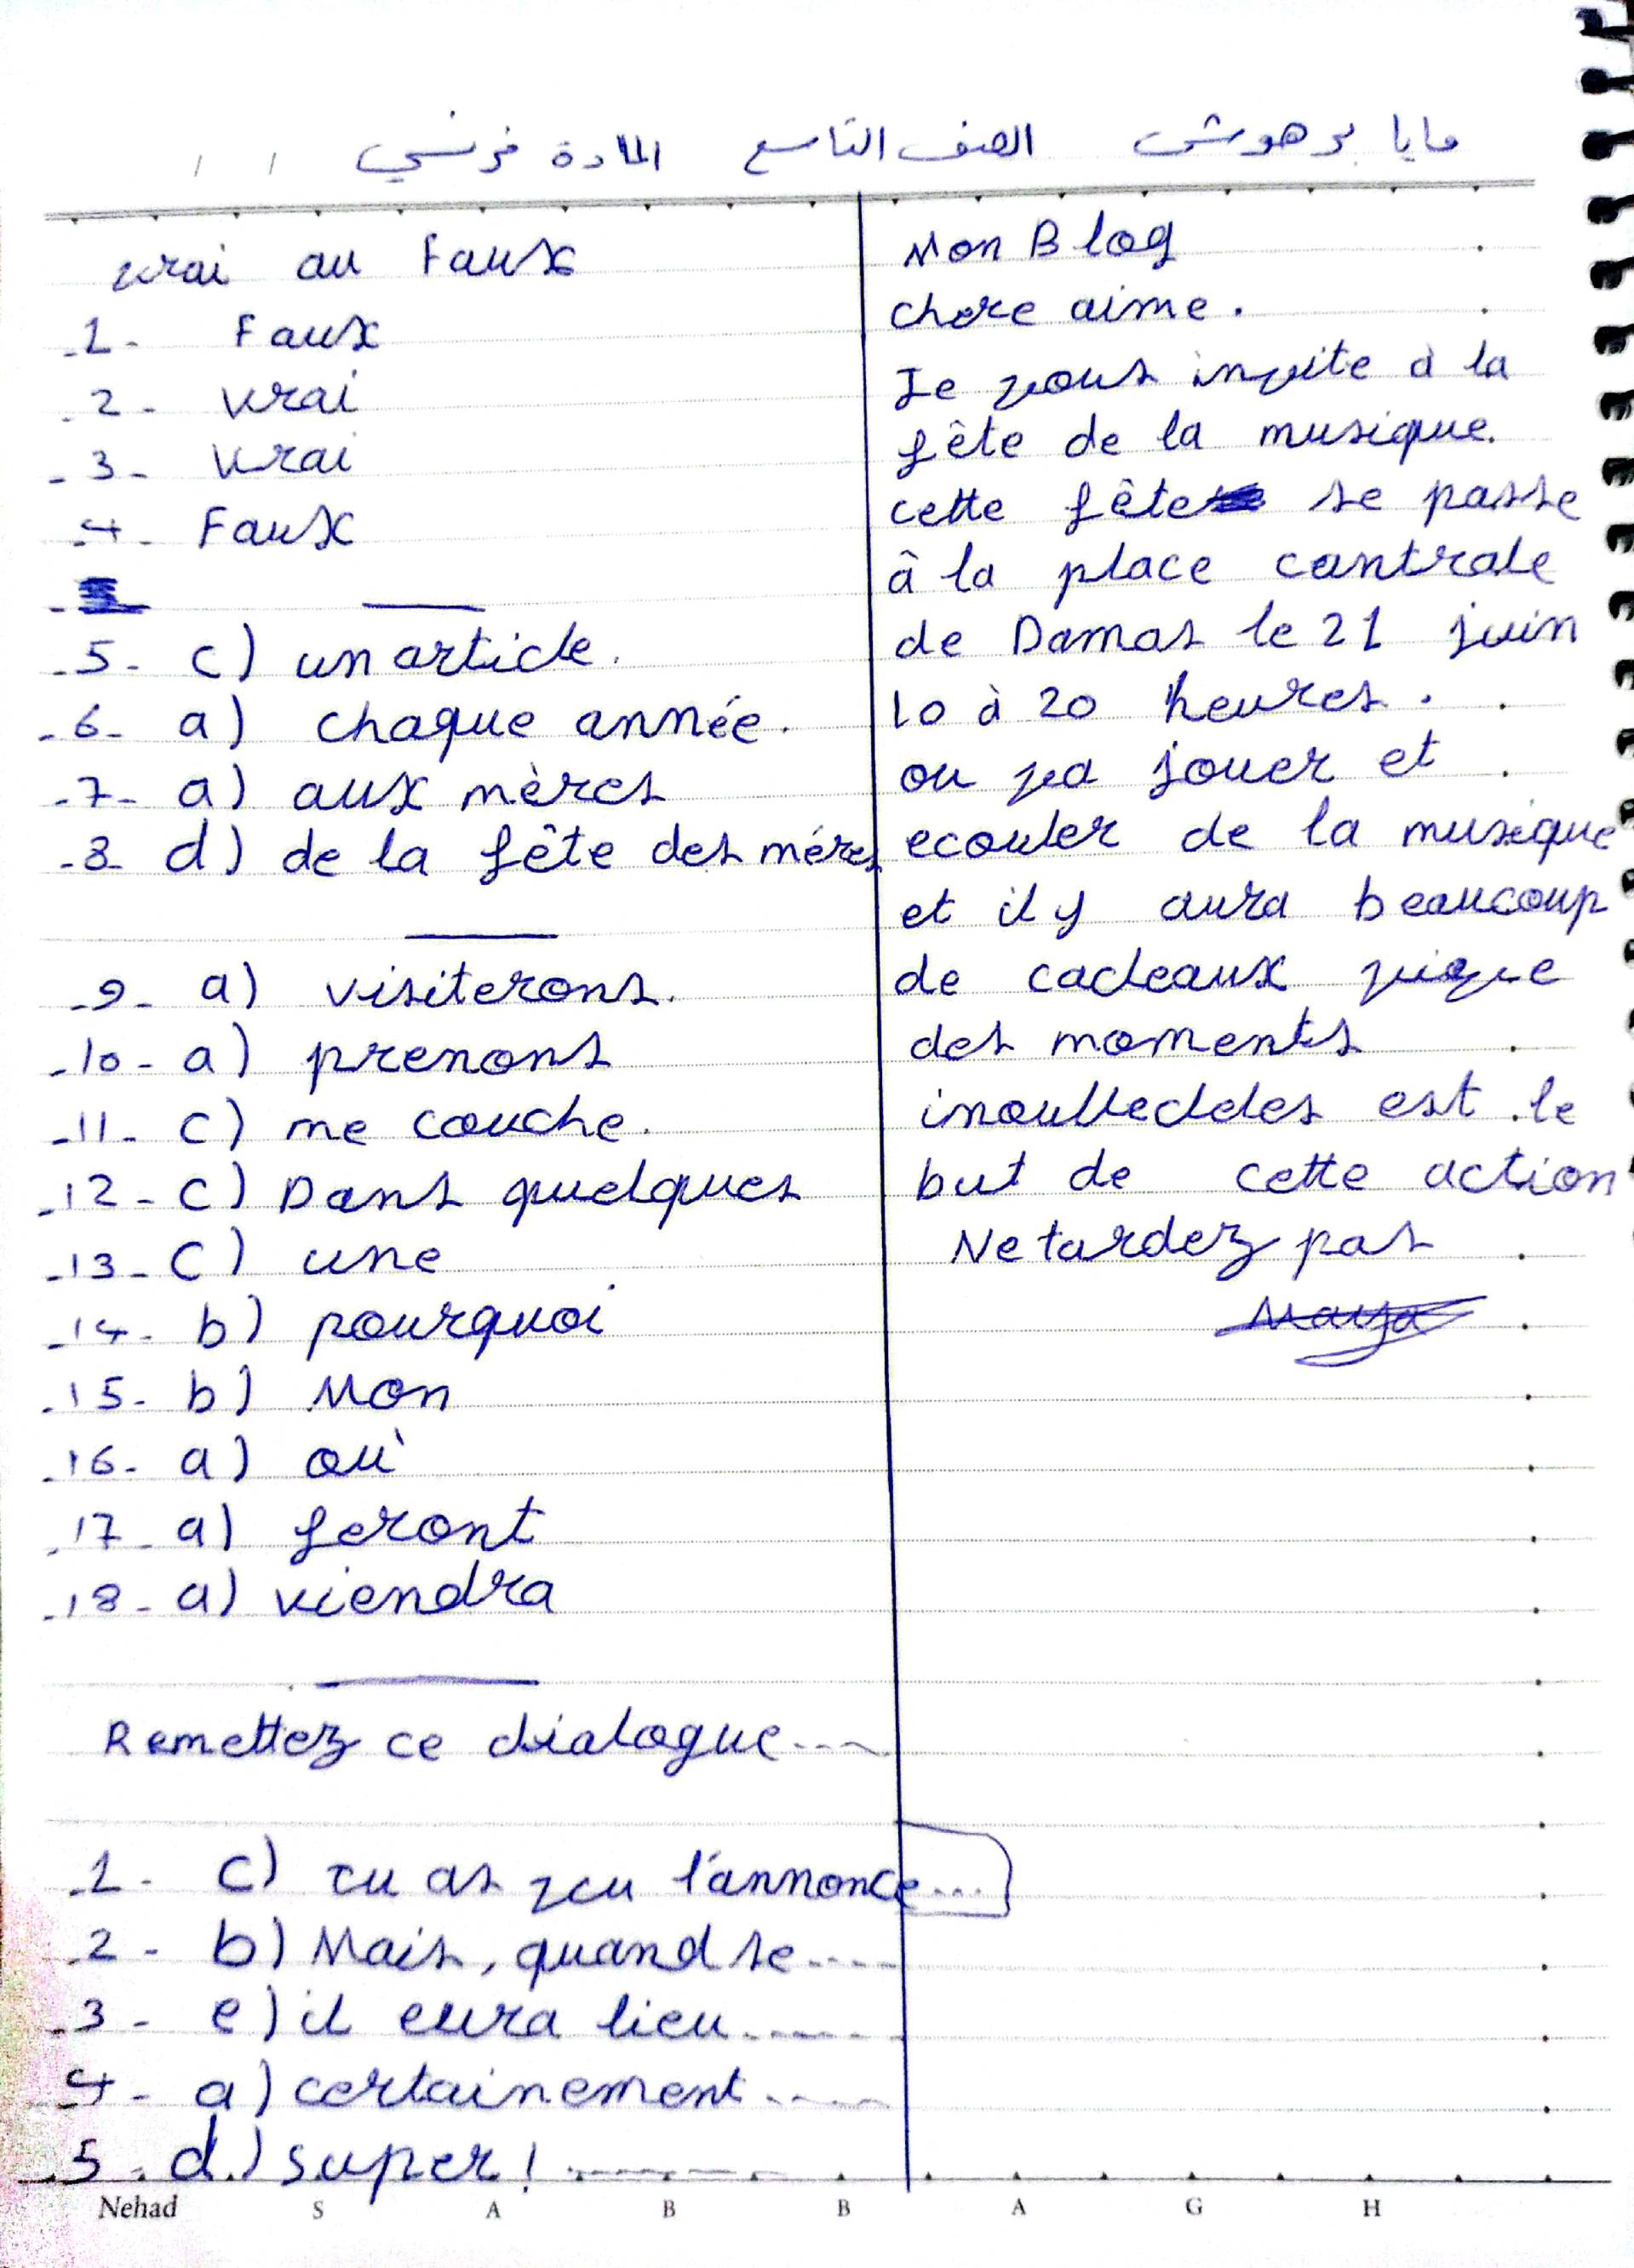 مايا برهوش الصف التاسع المادة فرنسي / /
vrai au Faux
-1- Faux
-2- vrai
-3- vrai
-4- Faux
-5- c) un article.
-6- a) chaque année.
-7- a) aux mères
-8- d) de la fête des méres
-9- a) visiterons.
-10- a) prenons
-11- c) me couche.
-12- c) Dans quelques
-13- c) une
-14- b) pourquoi
-15- b) Mon
-16- a) où
-17- a) feront
-18- a) viendra
Remettez ce dialogue....
-1- c) Tu as vu l'annonce...
-2- b) Mais, quand se....
-3- e) il eura lieu......
4- a) certainement.....
-5- d) super! ..........
Mon Blog
chere aime.
Je vous invite à la
fête de la musique.
cette fête se passe
â la place cantrale
de Damas le 21 juin
10 à 20 heures.
ou va jouer et
ecouter de la musique
et il y aura beaucoup
de cadeaux
des moments
est le
but de cette action
Ne tardez pas
Maya
Nehad S A B B A G H